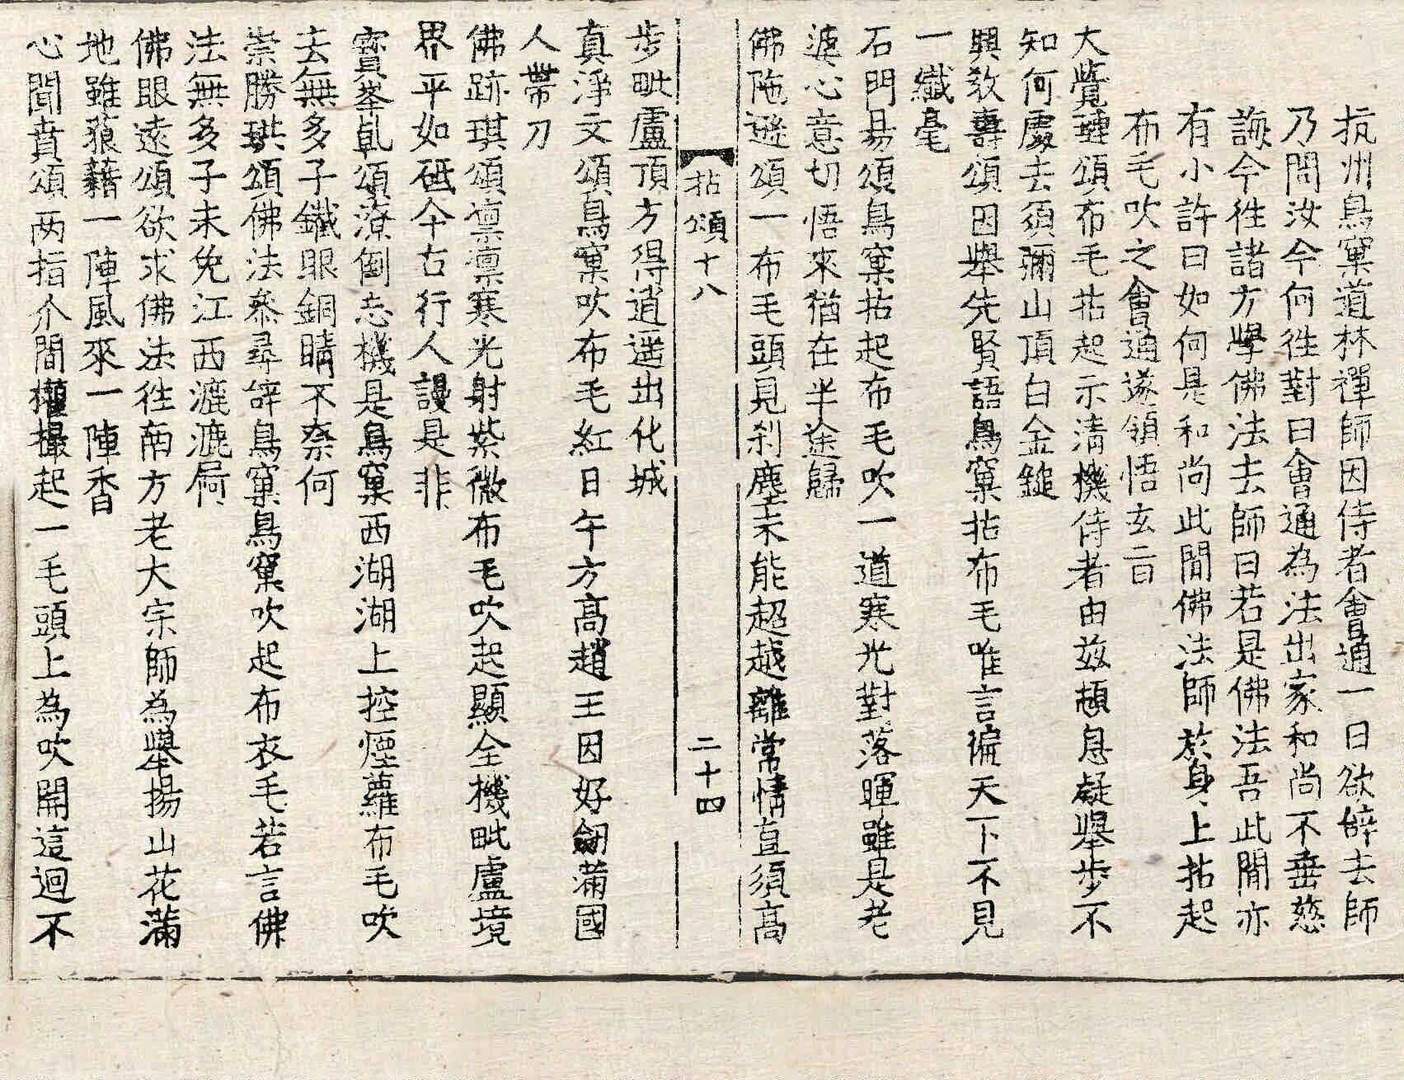 杭州鳥窠道林禪師因侍者會通一日欲辝去師
乃問汝今何徃對曰會通為法出家和尚不垂慈
誨今徃諸方學佛法去師曰若是佛法吾此間亦
有小許曰如何是和尚此間佛法師於身上拈起
布毛吹之會通遂領悟玄旨
大覺璉頌布毛拈起示清機侍者由玆頓息疑舉步不
知何處去須彌山頂白金鎚
興教壽頌因舉先賢語鳥窠拈布毛唯言徧天下不見
一纖毫
石門易頌鳥窠拈起布毛吹一道寒光對落暉雖是老
婆心意切悟來猶在半途歸
佛陁遜頌一布毛頭見刹塵未能超越離常情直須高
拈頌十八
二十四
步毗盧頂方得逍遥出化城
真淨文頌鳥窠吹布毛紅日午方高趙王因好劒滿國
人帶刀
佛跡琪頌凛凛寒光射紫微布毛吹起顯全機毗盧境
界平如砥今古行人謾是非
寳峯乹頌潦倒忘機是鳥窠西湖湖上控煙蘿布毛吹
去無多子鐵眼銅睛不柰何
崇勝珙頌佛法叅尋辝鳥窠鳥窠吹起布衣毛若言佛
法無多子未免江西漉漉𡱈
佛眼遠頌欲求佛法徃南方老大宗師為舉揚山花滿
地雖狼藉一陣風來一陣香
心聞賁頌两指介間𢹂撮起一毛頭上為吹開這迴不